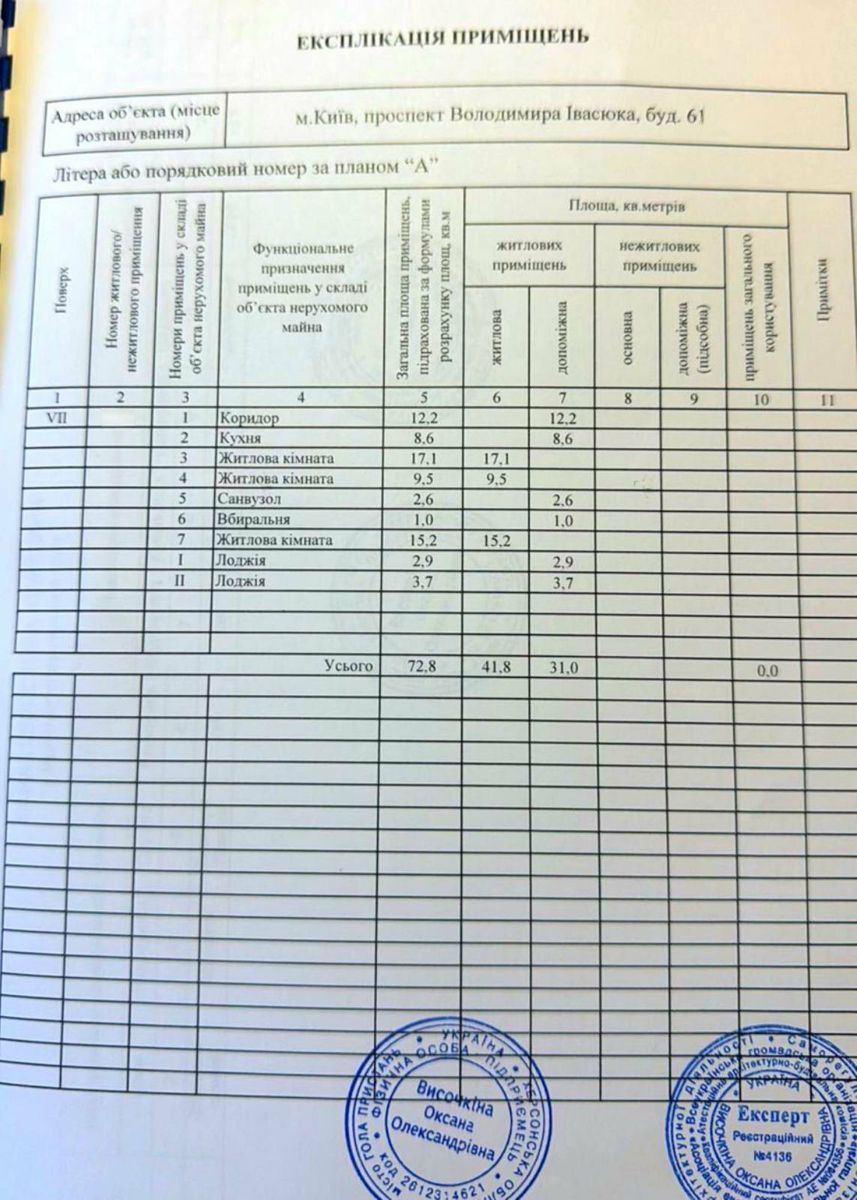 ЕКСПЛІКАЦІЯ ПРИМІЩЕНЬ
Адреса об’єкта (місце розташування)
м.Київ, проспект Володимира Івасюка, буд. 61
Літера або порядковий номер за планом “А”
Поверх
Номер житлового/ нежитлового приміщення
Номери приміщень у складі об’єкта нерухомого майна
Функціональне призначення приміщень у складі об’єкта нерухомого майна
Загальна площа приміщень, підрахована за формулами розрахунку площ, кв.м
Площа, кв.метрів
житлових приміщень
нежитлових приміщень
житлова
допоміжна
основна
допоміжна (підсобна)
приміщень загального користування
Примітки
1 2 3 4 5 6 7 8 9 10 11
VII 1 Коридор 12,2 12,2
2 Кухня 8,6 8,6
3 Житлова кімната 17,1 17,1
4 Житлова кімната 9,5 9,5
5 Санвузол 2,6 2,6
6 Вбиральня 1,0 1,0
7 Житлова кімната 15,2 15,2
I Лоджія 2,9 2,9
II Лоджія 3,7 3,7
Усього 72,8 41,8 31,0 0,0
МІСТО ГОЛА ПРИСТАНЬ • УКРАЇНА • ХЕРСОНСЬКА
ФІЗИЧНА ОСОБА - ПІДПРИЄМЕЦЬ
Височкіна
Оксана
Олександрівна
код 2612314621
УКРАЇНА
Експерт
Реєстраційний
№4136
ВИСОЧКІНА ОКСАНА ОЛЕКСАНДРІВНА